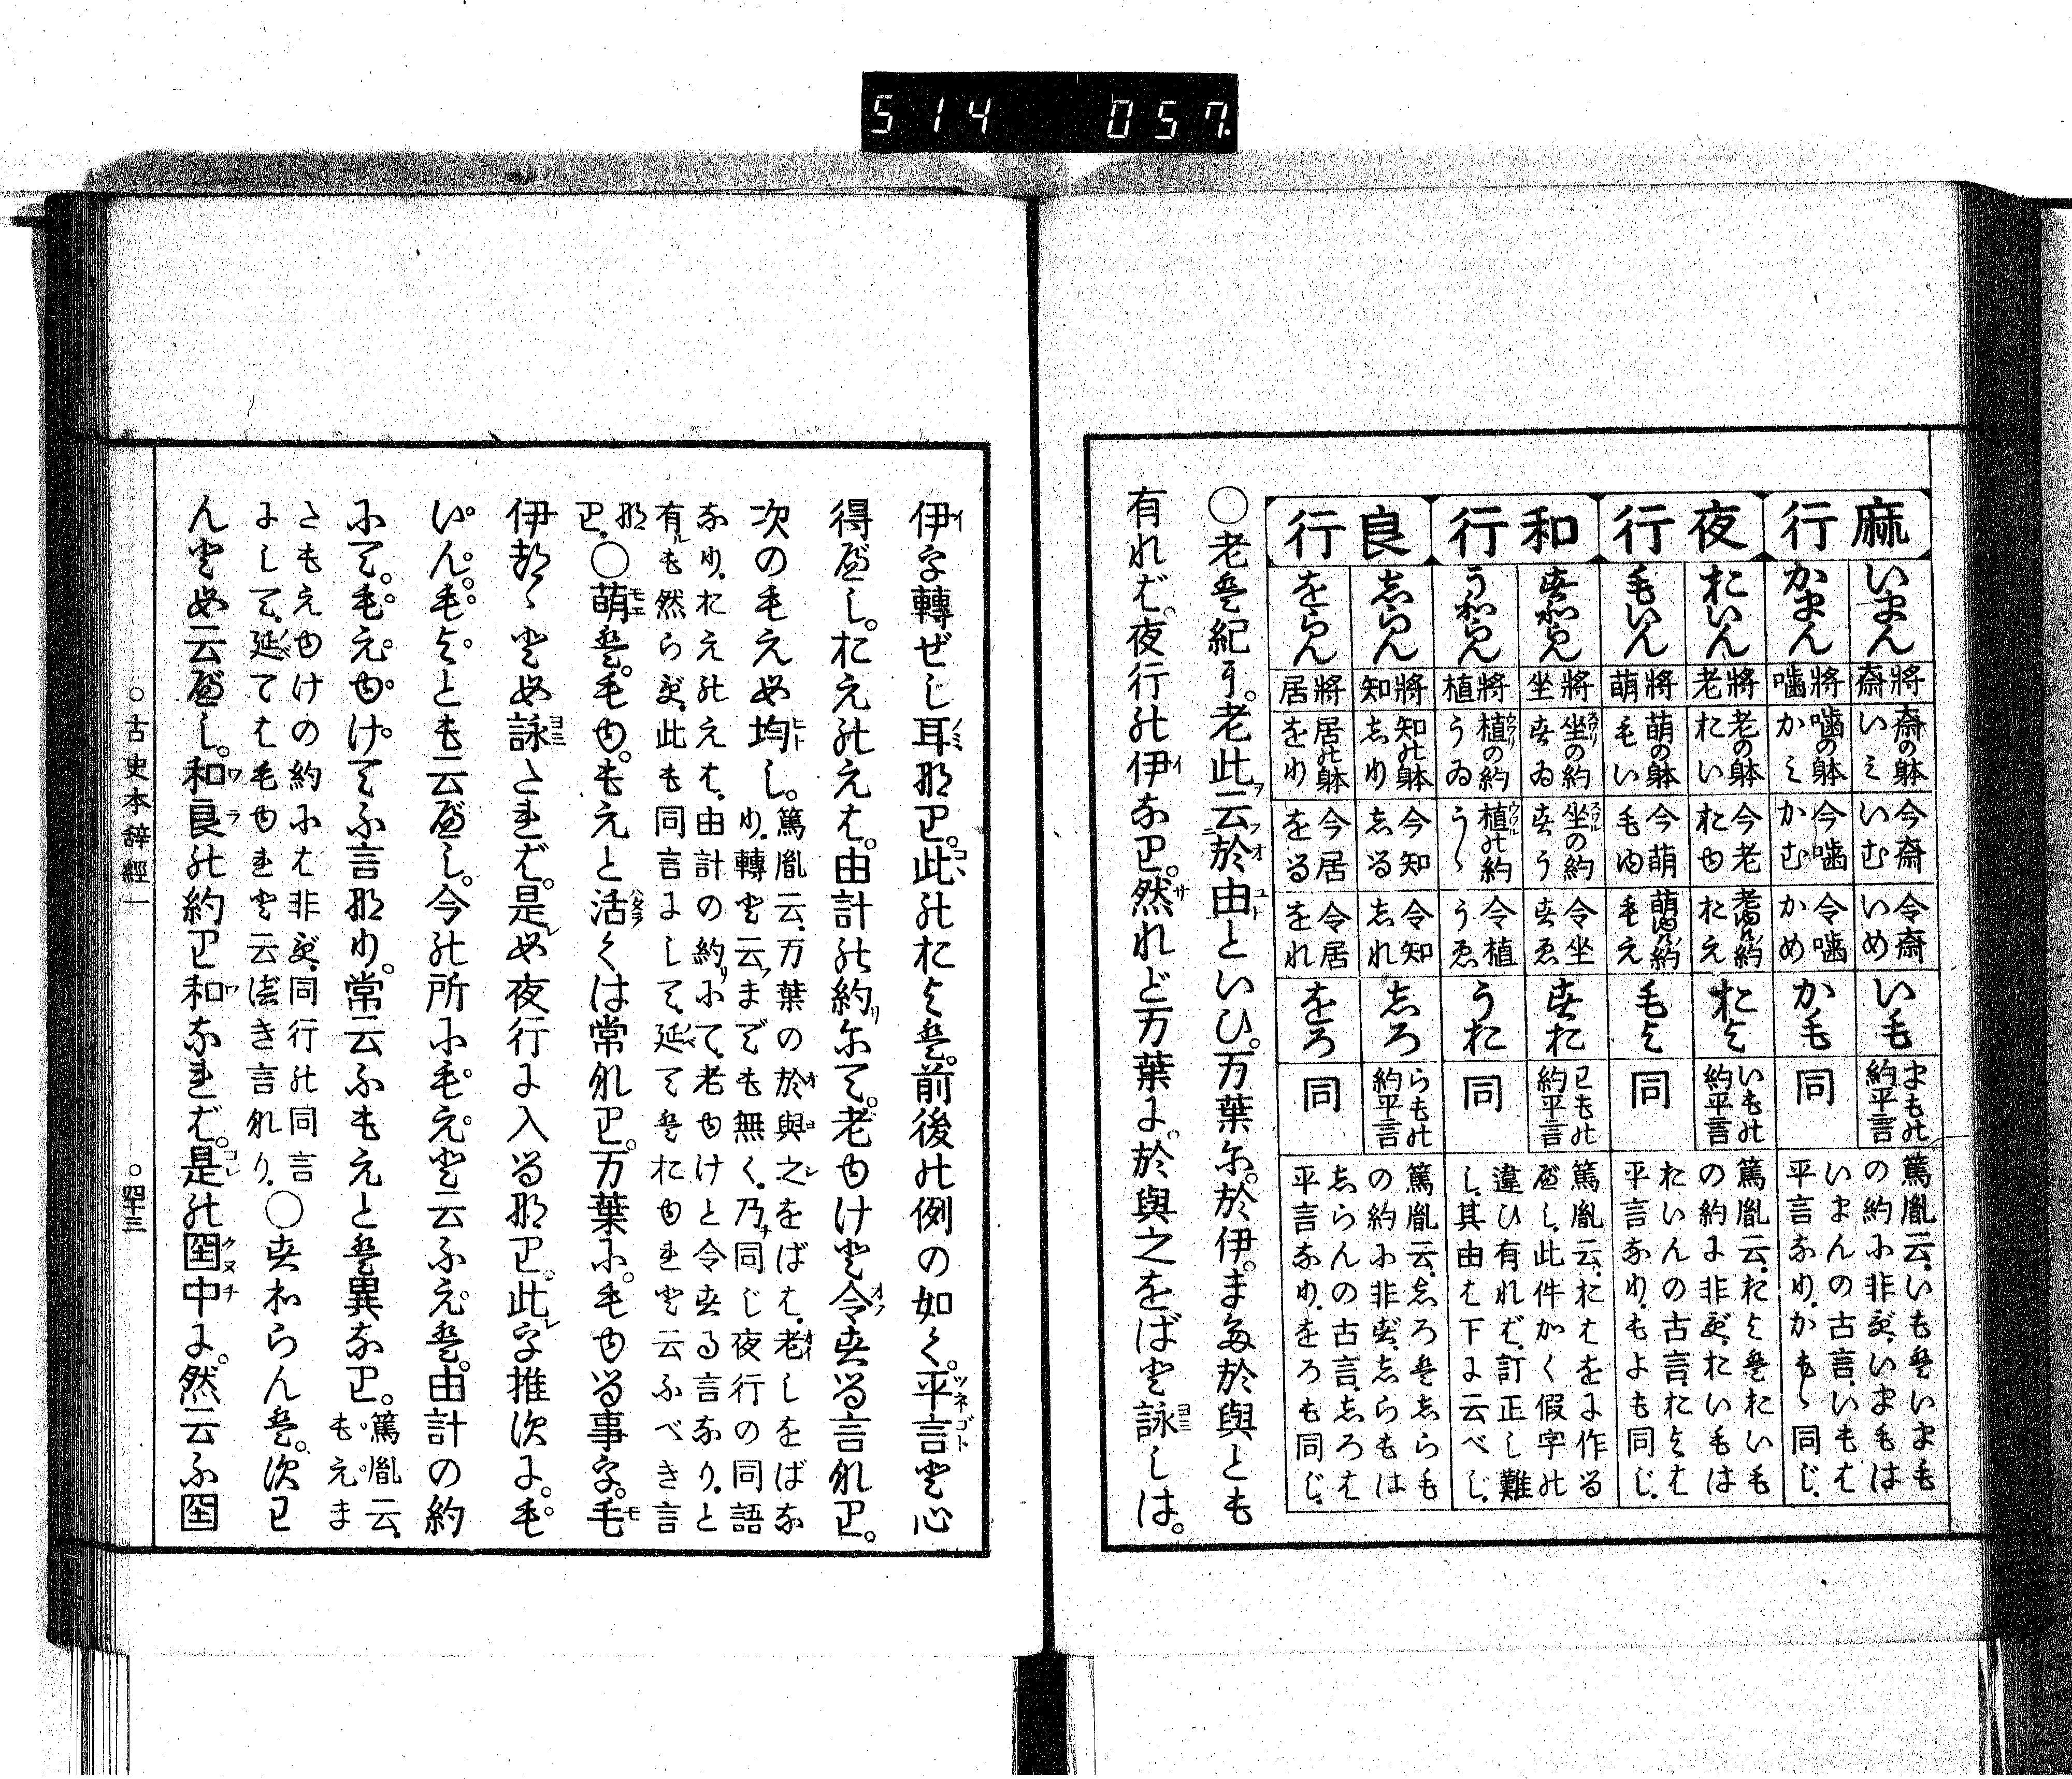 514 057.
麻行
いまん
將齋
齋の躰 いミ
今齋 いむ
令齋 いめ
いも
まもの約平言
かまん
將噛
噛の躰 かミ
今噛 かむ
令噛 かめ
かも
同
篤胤云、いも者いまも
の約に非ず、いまもは
いまんの古言、いもは
平言なり、かもゝ同じ、
夜行
おいん
將老
老の躰 おい
今老 おゆ
老ゆれ約 おえ
およ
いもの約平言
もいん
將萌
萌の躰 もい
今萌 もゆ
萌ゆれ約 もえ
もよ
同
篤胤云、およ者おいも
の約に非ず、おいもは
おいんの古言、およは
平言なり、もよも同じ、
和行
すわらん
將坐
坐の約 すゐ
坐の約 すう
令坐 すゑ
すお
わもの約平言
うわらん
將植
植の約 うゐ
植の約 うゝ
令植 うゑ
うお
同
篤胤云、おはをに作る
べし、此件かく假字の
違ひ有れば、訂正し難
し、其由は下に云べし、
良行
しらん
將知
知の躰 しり
今知 しる
令知 しれ
しろ
らもの約平言
をらん
將居
居の躰 をり
今居 をる
令居 をれ
をろ
同
篤胤云、しろ者しらも
の約に非ず、しらもは
しらんの古言、しろは
平言なり、をろも同じ、
○老者紀可。老此云於由といひ。万葉尓。於伊。ま多於與とも
有れば。夜行の伊なり。然れど万葉に。於與之をば登詠しは。
伊字轉ぜし耳那り。此のおよ者。前後の例の如く。平言登心
得べし。おえのえは。由計の約尓て。老ゆけ登令する言なり。
次のもえも均し。篤胤云、万葉の於與之をばは、老しをばな
り、轉登云までも無く、乃同じ夜行の同語
なり、おえのえは、由計の約にて、老ゆけと令する言なり、と
有るも然らず、此も同言にして、延て者おゆれ登云ふべき言
那り。○萌者。もゆ。もえと活くは常なり。万葉に。もゆる事字。毛
伊都々登も詠たれば。是も夜行に入る那り。此字推次に。も
いん。もよとも云べし。今の所にもえ登云ふえ者。由計の約
にて。もえゆけてふ言那り。常云ふもえと者異なり。篤胤云、
もえま
たもえゆけの約には非ず、同行の同言
にして、延てはもゆれ登云べき言なり、○すわらん者。次り
ん登も云べし。和良の約り和なれば。是の圀中に。然云ふ圀
○古史本辞經一
○四十三